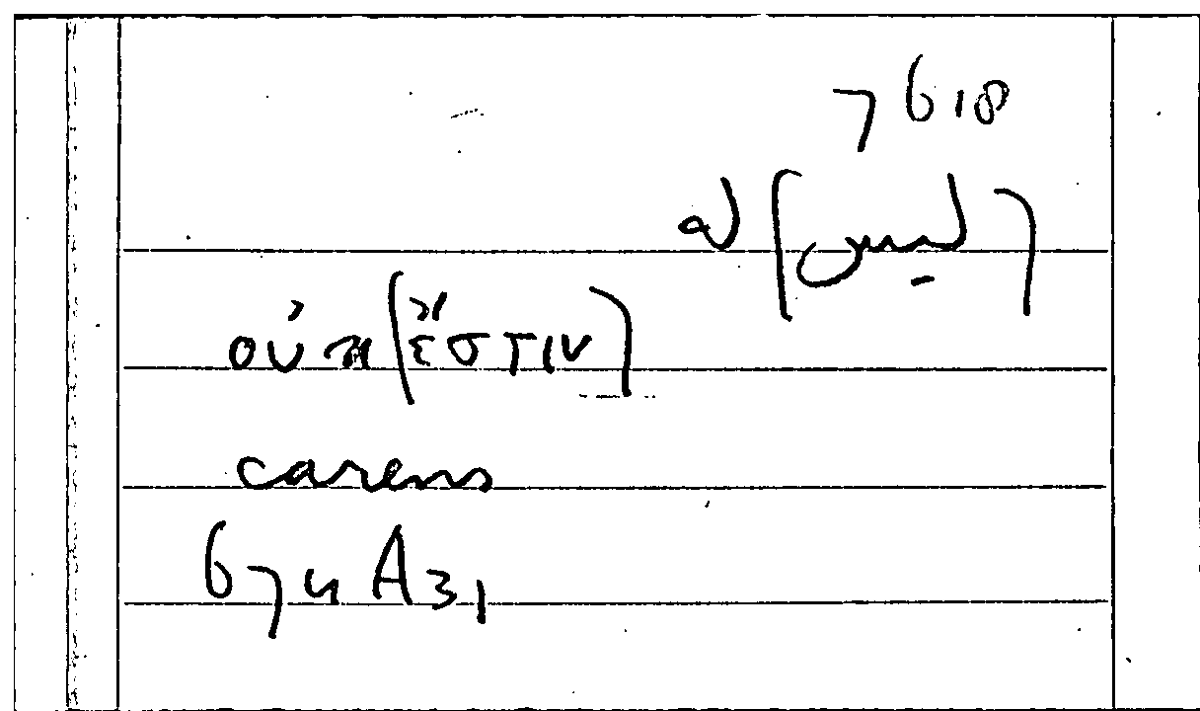 7618
(ليس) له
οὐκ (ἔστιν)
carens
674 A31